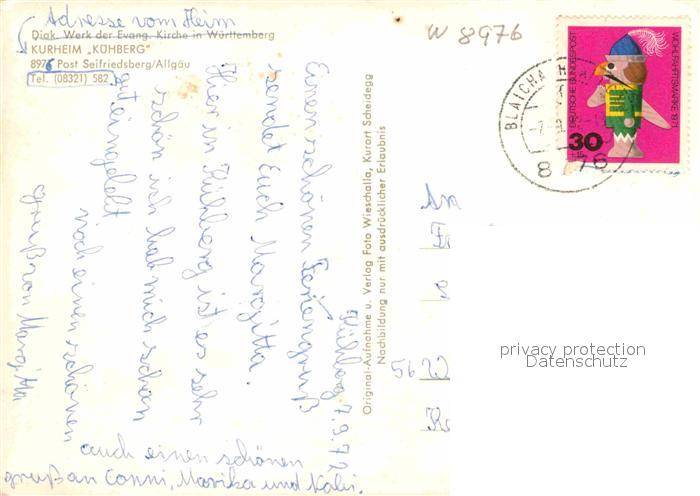 Adresse vom Heim
Diak. Werk der Evang. Kirche in Württemberg
KURHEIM „KÜHBERG"
8976 Post Seifriedsberg/Allgäu
Tel. (08321) 582
Kühberg 7.9.72
Einen schönen Feriengruß
sendet Euch Margitta.
Hier in Kühberg ist es sehr
schön ich hab mich schon
gut eingelebt
noch einen schönen
Gruß von Margitta
auch einen schönen
gruß an Conni, Marika und Kabi.
Original-Aufnahme u. Verlag Foto Wieschalla, Kurort Scheidegg
Nachbildung nur mit ausdrücklicher Erlaubnis
W 8976
BLAICHA
8976
DEUTSCHE BUNDESPOST
WOHLFAHRTSMARKE 1971
30
An
56
privacy protection
Datenschutz